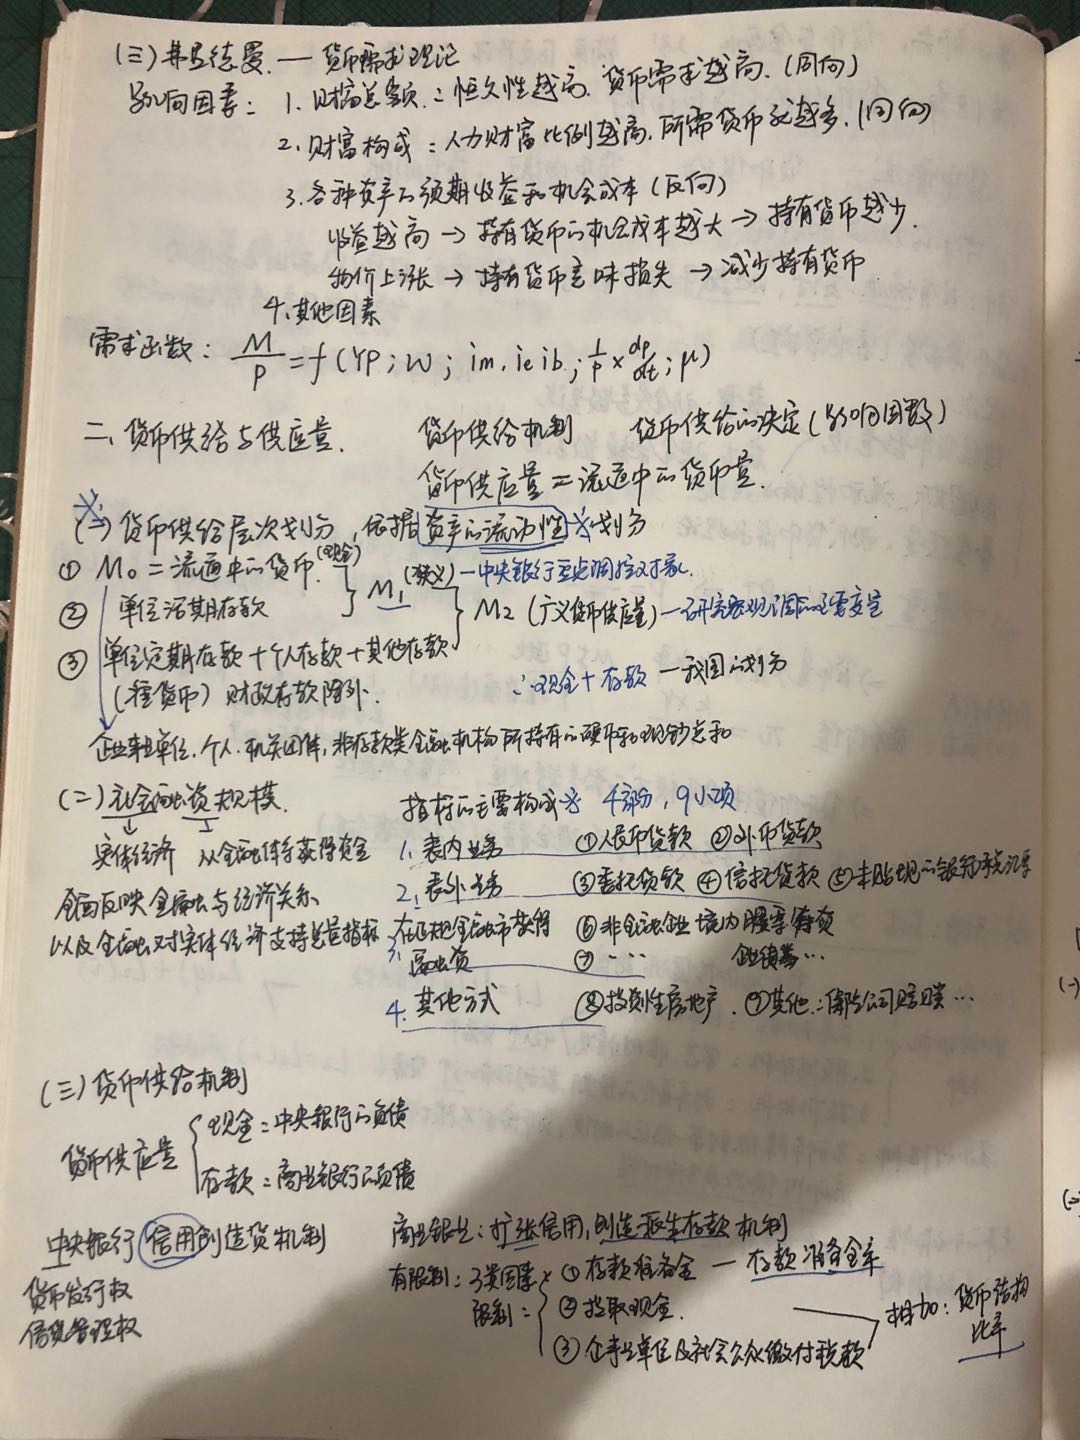 (三)弗里德曼 — 货币需求理论
影响因素： 1. 财富总额：恒久性越高，货币需求越高.(同向)
2. 财富构成：人力财富比例越高，所需货币就越多.(同向)
3. 各种资产的预期收益和机会成本(反向)
收益越高 → 持有货币的机会成本越大 → 持有货币越少.
物价上涨 → 持有货币意味损失 → 减少持有货币
4. 其他因素
需求函数： M/P = f (YP; W; im, ie, ib; 1/P × dp/dt; μ)
二、货币供给与供应量. 货币供给机制 货币供给的决定(影响因数)
货币供应量 = 流通中的货币量.
(一)货币供给层次划分，依据资产的流动性来划分
① M0 = 流通中的货币.(现金) } M1 (狭义) — 中央银行重点调控对象.
② 单位活期存款 } M2 (广义货币供应量) — 研究宏观调控的重要变量
③ 单位定期存款 + 个人存款 + 其他存款
(准货币) 财政存款除外. ∴ 现金 + 存款 — 我国的划分
企业事业单位、个人、机关团体，非存款类金融机构所持有的硬币和现钞总和
(二)社会融资规模. 指标的主要构成 4部分，9小项
实体经济 从金融体系获得资金 1. 表内业务 ①人民币贷款 ②外币贷款
全面反映金融与经济关系 2. 表外业务 ③委托贷款 ④信托贷款 ⑤未贴现的银行承兑汇票
以及金融对实体经济支持总量指标 3. 在正规金融市获得 ⑥非金融企业境内股票筹资
融资 ⑦ …… 企业债券…
4. 其他方式 ⑧投资性房地产. ⑨其他：保险公司赔偿…
(三)货币供给机制
货币供应量 { 现金 = 中央银行的负债
存款 = 商业银行的负债
中央银行信用创造货机制 商业银行：扩张信用，创造派生存款机制
货币发行权 有限制：3类因素 ①存款准备金 — 存款准备金率
信贷管理权 限制 = ②提取现金. 相加：货币结构
③企事业单位及社会公众缴付税款 比率